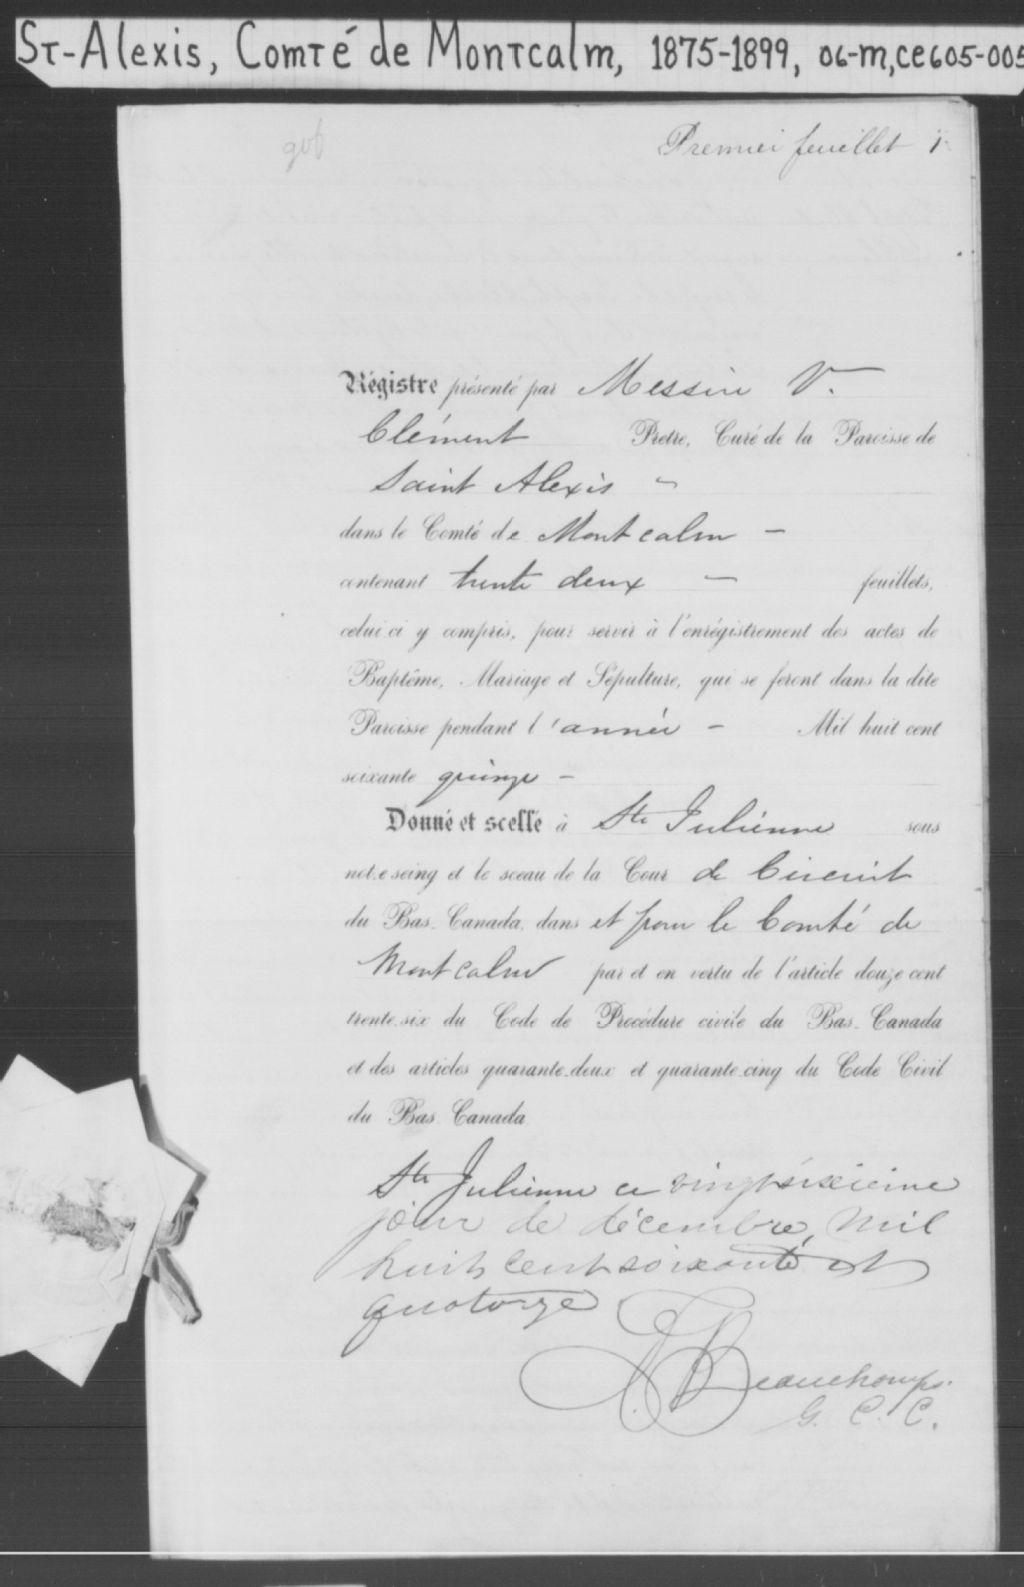 ST-Alexis, Comté de Montcalm, 1875-1899, 06-M,CE605-005
Premier feuillet 1
Régistre présenté par Messire V.
Clément Prêtre, Curé de la Paroisse de
Saint Alexis
dans le Comté de Montcalm –
contenant trente deux – feuillets,
celui ci y compris, pour servir à l'enrégistrement des actes de
Baptême, Mariage et Sépulture, qui se feront dans la dite
Paroisse pendant l'année – Mil huit cent
soixante quinze –
Donné et scellé à Ste Julienne sous
notre seing et le sceau de la Cour de Circuit
du Bas-Canada, dans et pour le Comté de
Montcalm par et en vertu de l'article douze cent
trente-six du Code de Procédure civile du Bas-Canada
et des articles quarante-deux et quarante-cinq du Code Civil
du Bas-Canada
Ste Julienne ce vingtsixième
jour de décembre, mil
huit cent soixante et
quatorze
Beauchamp
G. C. C.